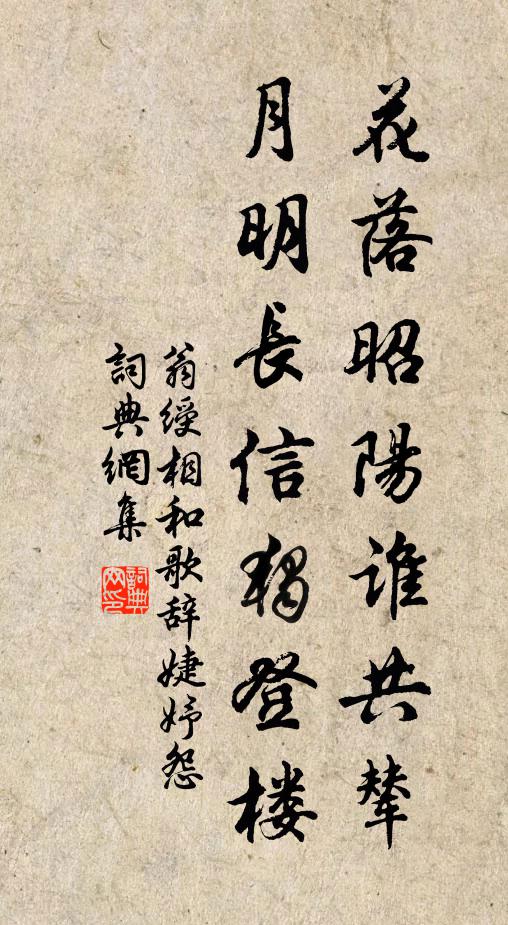 花落昭陽谁共輦
月明長信獨登楼
翁綬相和歌辞婕妤怨
詞典網集
詞典网印